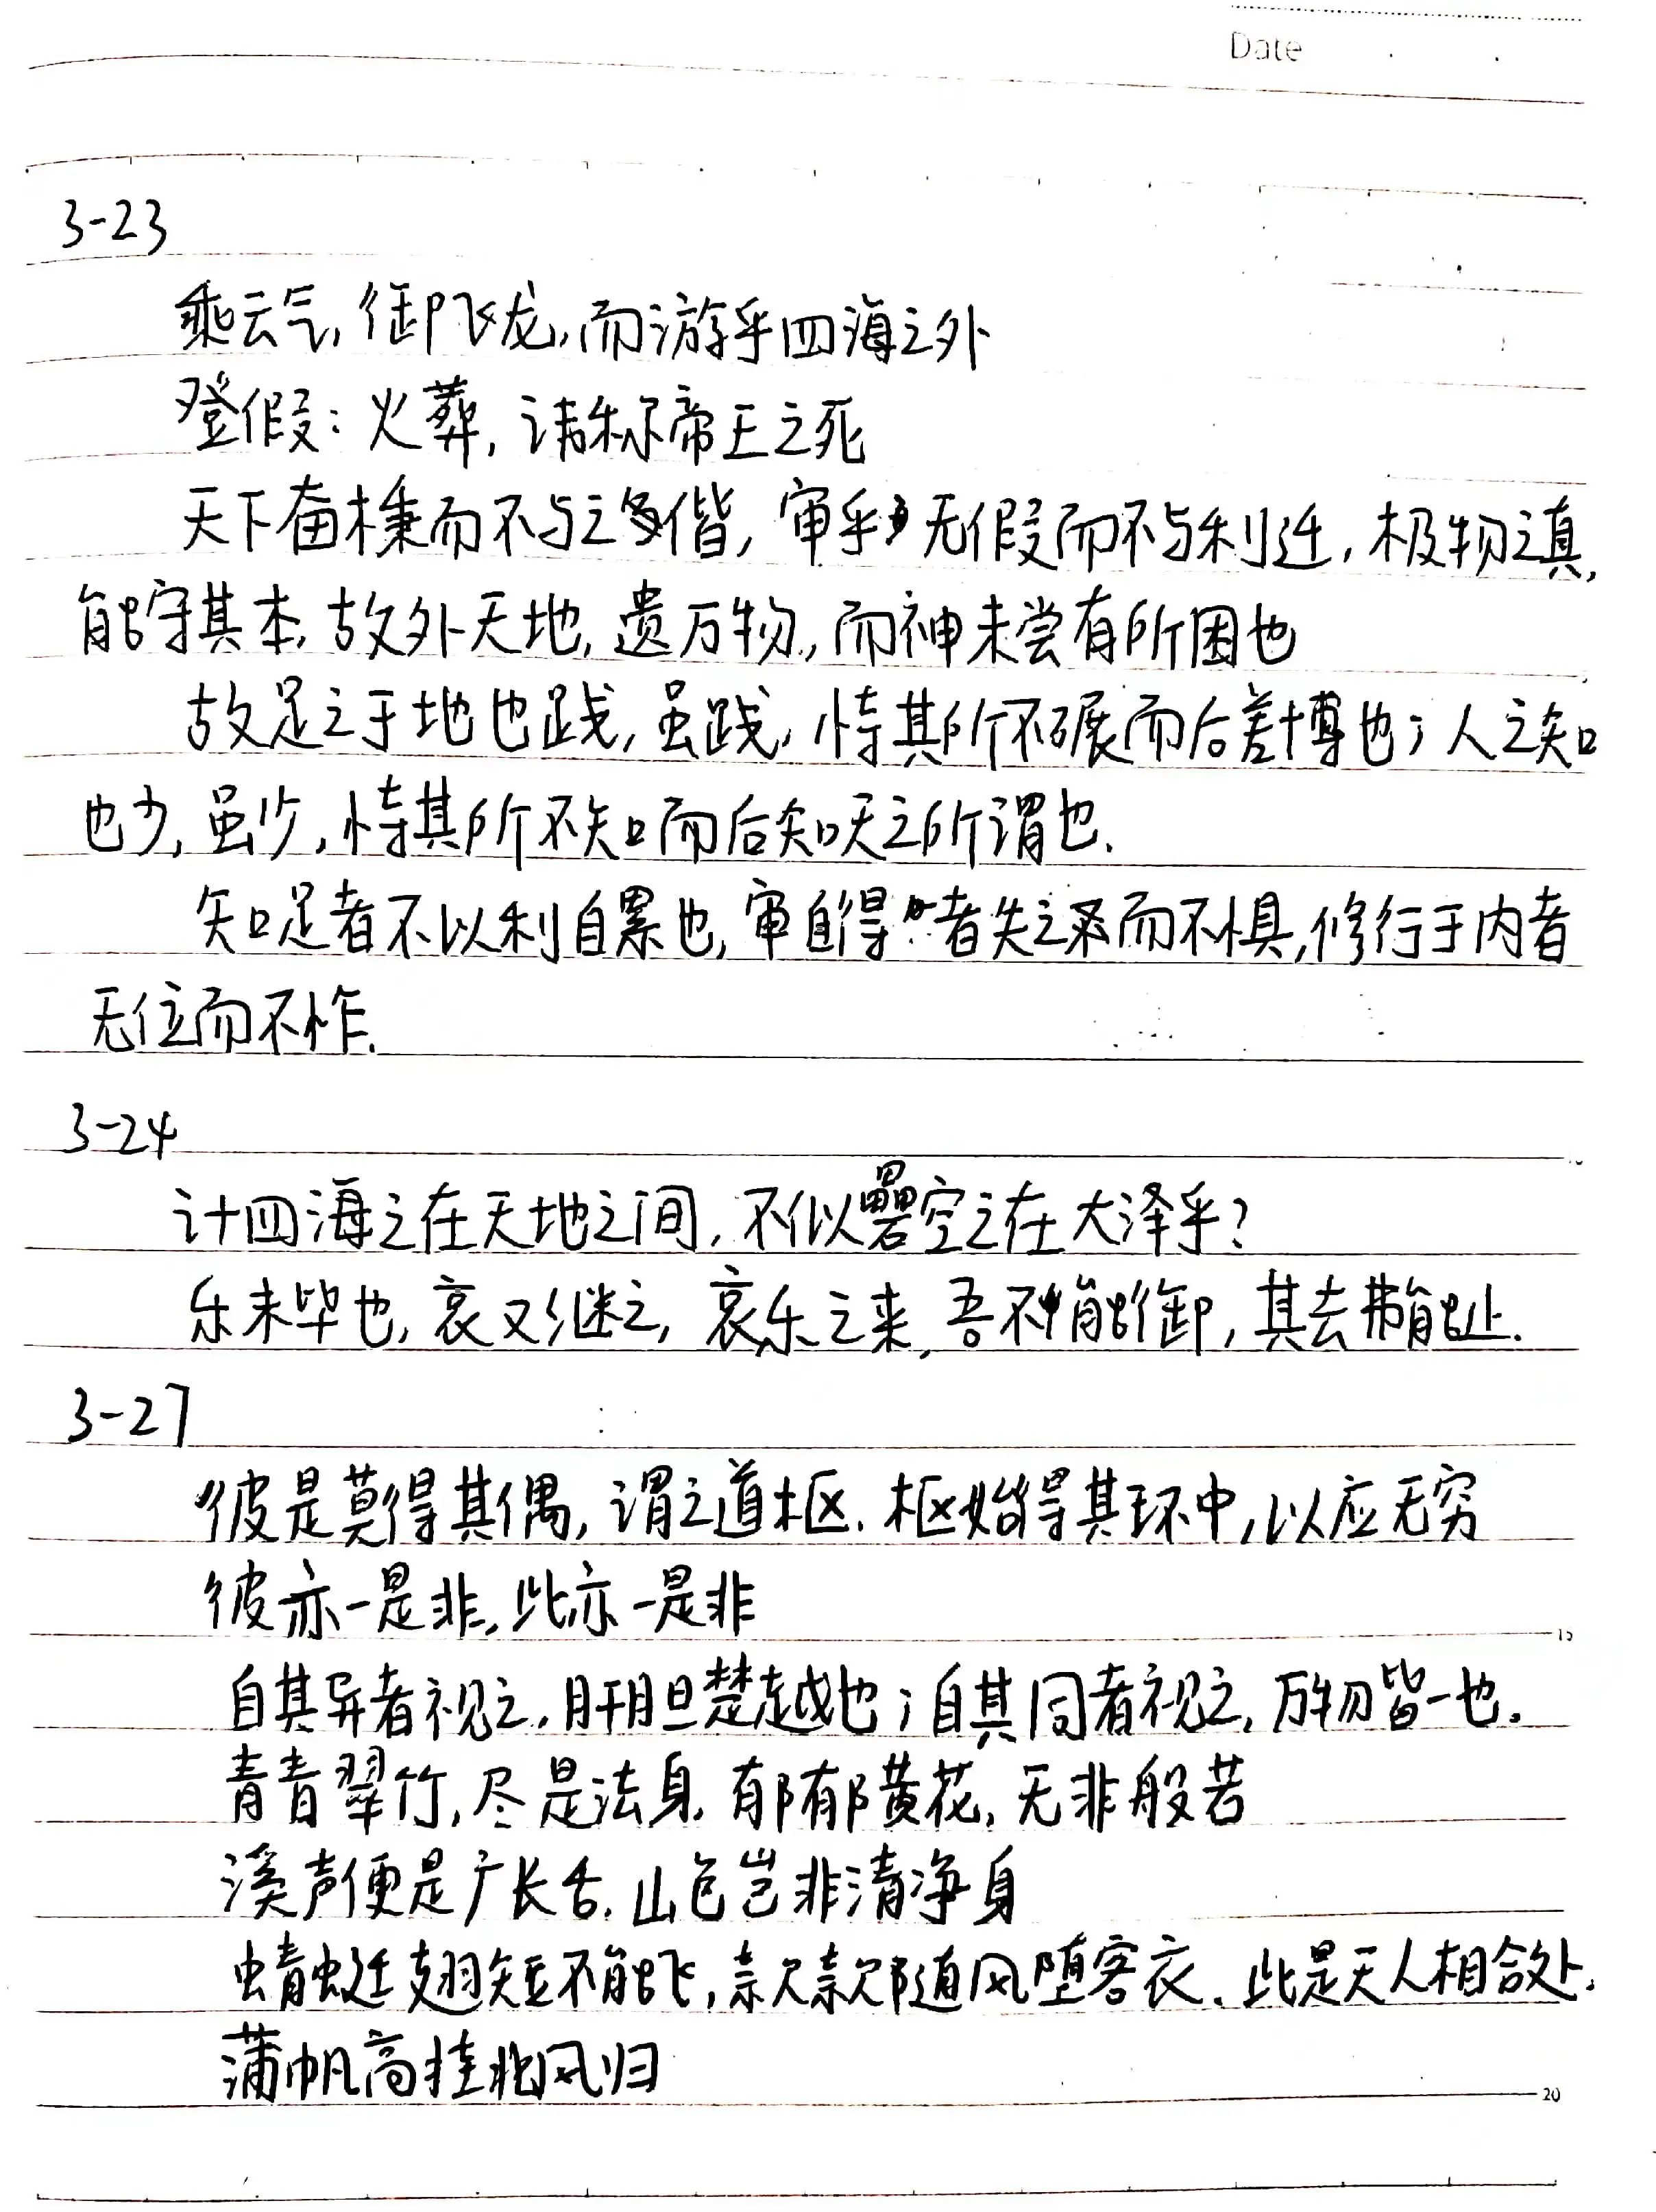 Date
3-23
乘云气,御飞龙,而游乎四海之外
登假:火葬,讳称帝王之死
天下奋棅而不与之偕,审乎无假而不与利迁,极物之真,
能守其本,故外天地,遗万物,而神未尝有所困也
故足之于地也践,虽践,恃其所不碾而后差博也;人之知
也少,虽少,恃其所不知而后知天之所谓也.
知足者不以利自累也,审自得者失之而不惧,修行于内者
无位而不怍.
3-24
计四海之在天地之间,不似礨空之在大泽乎?
乐未毕也,哀又继之,哀乐之来,吾不能御,其去弗能止.
3-27
彼是莫得其偶,谓之道枢.枢始得其环中,以应无穷
彼亦一是非,此亦一是非
15
自其异者视之,肝胆楚越也;自其同者视之,万物皆一也.
青青翠竹,尽是法身.郁郁黄花,无非般若
溪声便是广长舌.山色岂非清净身
蜻蜓翅短不能飞,款款随风堕客衣.此是天人相合处.
蒲帆高挂北风归
20